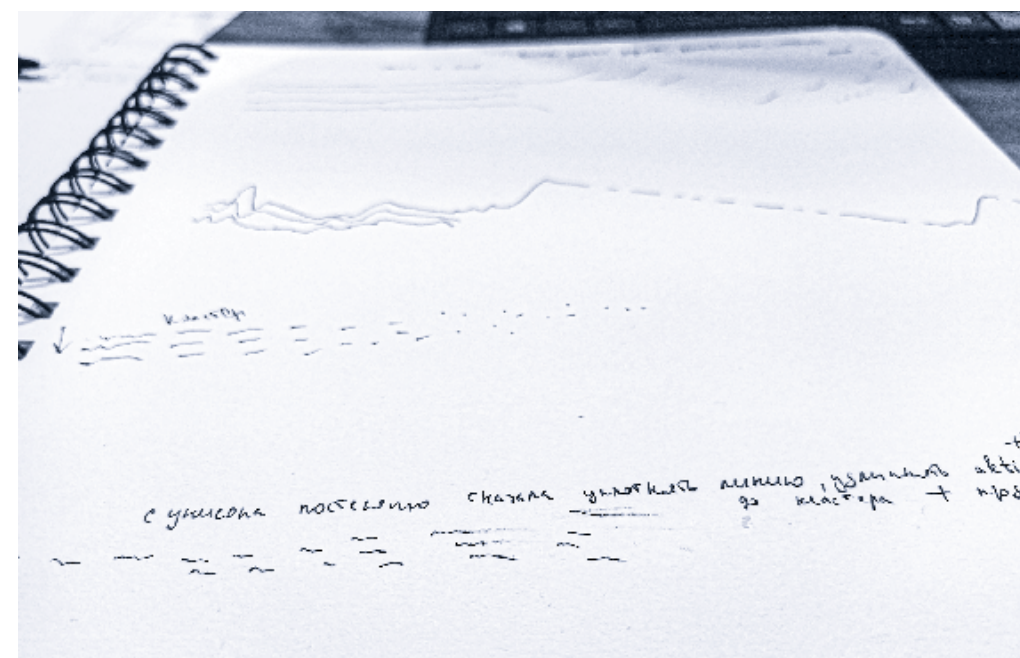 кластер
с унисона постепенно сначала уплотнять линию, удлинять akti
до кластера +